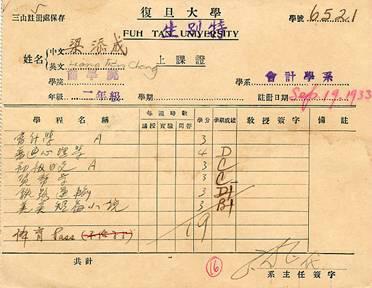 三山註冊處保存
復旦大學
特別生
學號 6521
FUH TAN UNIVERSITY
姓名 中文 梁添成
英文
上課證
學院 商學院
學系 會計學系
年級 二年級 學期 註冊日期 Sep. 19. 1933
學程名稱 每週時數 學分 學期成績 教授簽字 備註
講授 實驗 問答
會計學 A 3
心理學 4 D
初級日文 A 3 C
貨幣學 3 C
鐵路運輸 3 D+
英美短篇小說 3 B+
體育 Pass
19
共計
16
系主任簽字